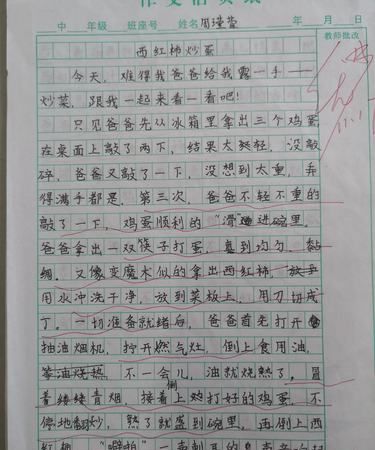 中 年级 班座号 姓名 周瑾萱 年 月 日
教师批改
西红柿炒蛋
今天，难得我爸爸给我露一手——
炒菜，跟我一起来看一看吧！
只见爸爸先从冰箱里拿出三个鸡蛋
在桌面上敲了两下，结果太轻，没敲
碎，爸爸又敲了一下，没想到太重，弄
得满手都是，第三次，爸爸不轻不重的
敲了一下，鸡蛋顺利的“滑”进碗里。
爸爸拿出一双筷子打蛋，直到均匀、黏
稠，又像变魔术似的拿出西红柿
用水冲洗干净，放到菜板上，用刀切成
丁。一切准备就绪后，爸爸首先打开
抽油烟机，拧开燃气灶，倒上食用油，
等油烧热 不一会儿，油就烧熟了，冒
着缕缕青烟，接着倒上打好的鸡蛋，不
停地翻炒，熟了就盛到碗里，再倒上西
红柿，“噼啪”一声刺耳的